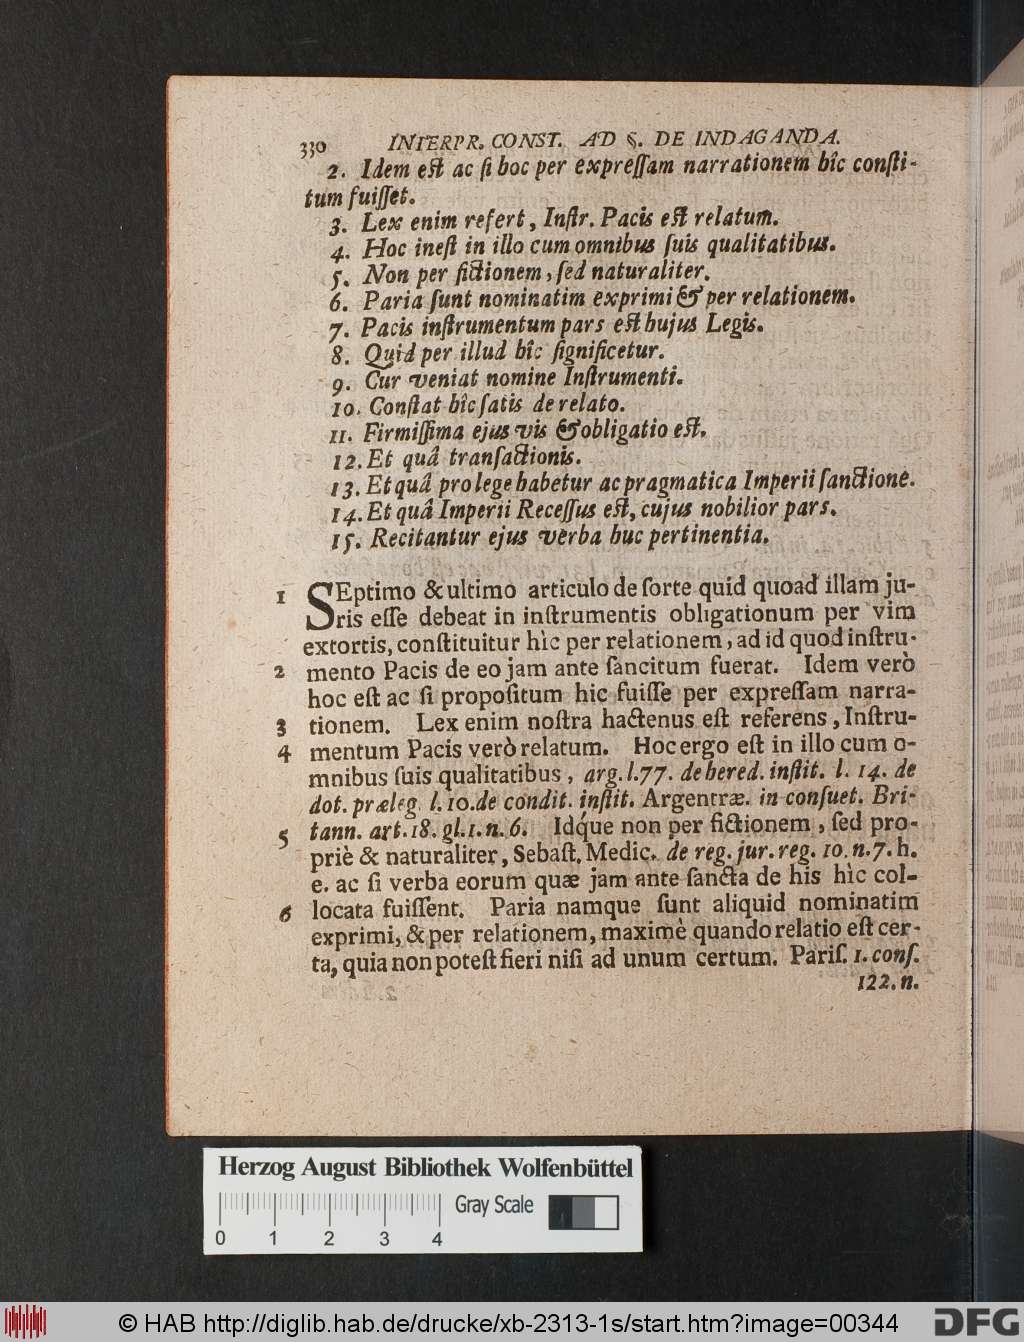 330 INTERPR. CONST. AD §. DE INDAGANDA.
2. Idem eſt ac ſi hoc per expreſſam narrationem hîc conſti-
tum fuiſſet.
3. Lex enim refert, Inſtr. Pacis eſt relatum.
4. Hoc ineſt in illo cum omnibus ſuis qualitatibus.
5. Non per fictionem, ſed naturaliter.
6. Paria ſunt nominatim exprimi & per relationem.
7. Pacis inſtrumentum pars eſt hujus Legis.
8. Quid per illud hîc ſignificetur.
9. Cur veniat nomine Inſtrumenti.
10. Conſtat hîc ſatis de relato.
11. Firmiſſima ejus vis & obligatio eſt.
12. Et quâ tranſactionis.
13. Et quâ pro lege habetur ac pragmatica Imperii ſanctione.
14. Et quâ Imperii Receſſus eſt, cujus nobilior pars.
15. Recitantur ejus verba huc pertinentia.
1 SEptimo & ultimo articulo de ſorte quid quoad illam ju-
ris eſſe debeat in inſtrumentis obligationum per vim
extortis, conſtituitur hìc per relationem, ad id quod inſtru-
2 mento Pacis de eo jam ante ſancitum fuerat. Idem verò
hoc eſt ac ſi propoſitum hic fuiſſe per expreſſam narra-
3 tionem. Lex enim noſtra hactenus eſt referens, Inſtru-
4 mentum Pacis verò relatum. Hoc ergo eſt in illo cum o-
mnibus ſuis qualitatibus, arg. l. 77. de hered. inſtit. l. 14. de
dot. præleg. l. 10. de condit. inſtit. Argentræ. in conſuet. Bri-
5 tann. art. 18. gl. 1. n. 6. Idq́ue non per fictionem, ſed pro-
priè & naturaliter, Sebaſt. Medic. de reg. jur. reg. 10. n. 7. h.
e. ac ſi verba eorum quæ jam ante ſancta de his hìc col-
6 locata fuiſſent. Paria namque ſunt aliquid nominatim
exprimi, & per relationem, maximè quando relatio eſt cer-
ta, quia non poteſt fieri niſi ad unum certum. Pariſ. 1. conſ.
122. n.
Herzog August Bibliothek Wolfenbüttel
Gray Scale
0 1 2 3 4
© HAB http://diglib.hab.de/drucke/xb-2313-1s/start.htm?image=00344
DFG